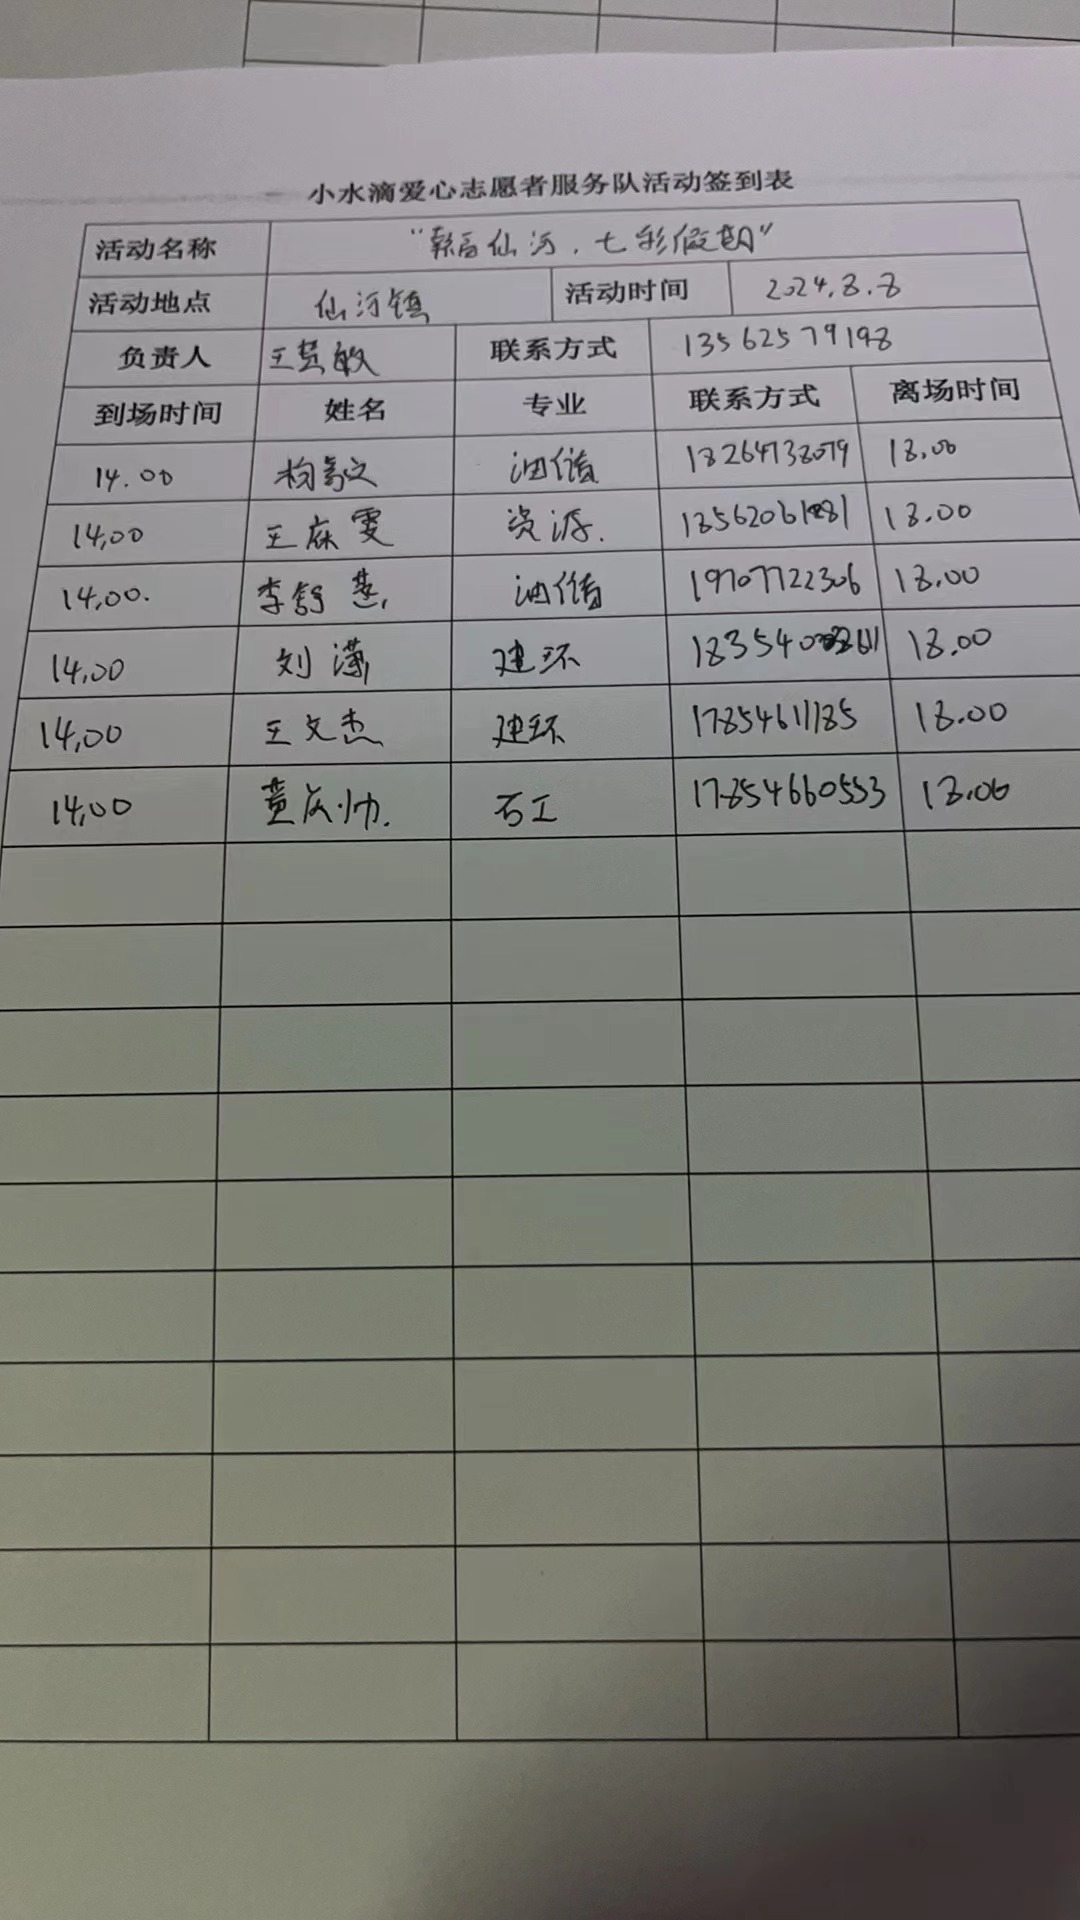 小水滴爱心志愿者服务队活动签到表
活动名称 "仙河，七彩假期"
活动地点 仙河镇 活动时间 2024.8.8
负责人 王慧敏 联系方式 13562579198
到场时间 姓名 专业 联系方式 离场时间
14.00 杨文 油储 18264738079 18.00
14,00 王麻雯 资源. 18.00
14,00. 李舒燕 油储 19707722306 18.00
14,00 刘潇 建环 18.00
14,00 王文杰 建环 17854611185 18.00
14,00 黄庆帅. 石工 17854660553 18.00